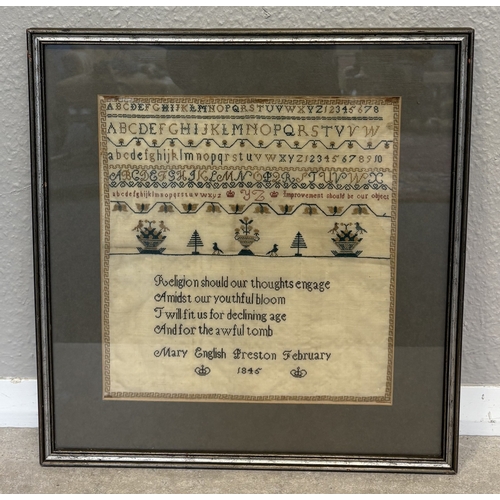 ABCDEFGHIJKLMNOPQRSTUVWXYZ12345678
ABCDEFGHIJKLMNOPQRSTUVW
abcdefghijklmnopqrstuvwxyz12345678910
ABCDEFGHIJKLMNOPQRSTUVWX
abcdefghijklmnopqrstuvwxyz YZ Improvement should be our object
Religion should our thoughts engage
Amidst our youthful bloom
T will fit us for declining age
And for the awful tomb
Mary English Preston February
1846